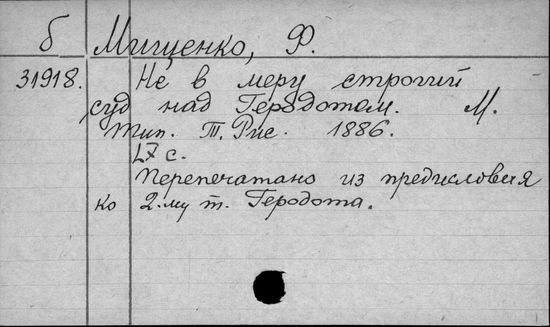 б Мищенко, Ф.
31918. Не в меру строгий
суд над Геродотом. М.
Тип. Т. Рис. 1886.
LX с.
Перепечатано из предисловия
ко 2.му т. Геродота.